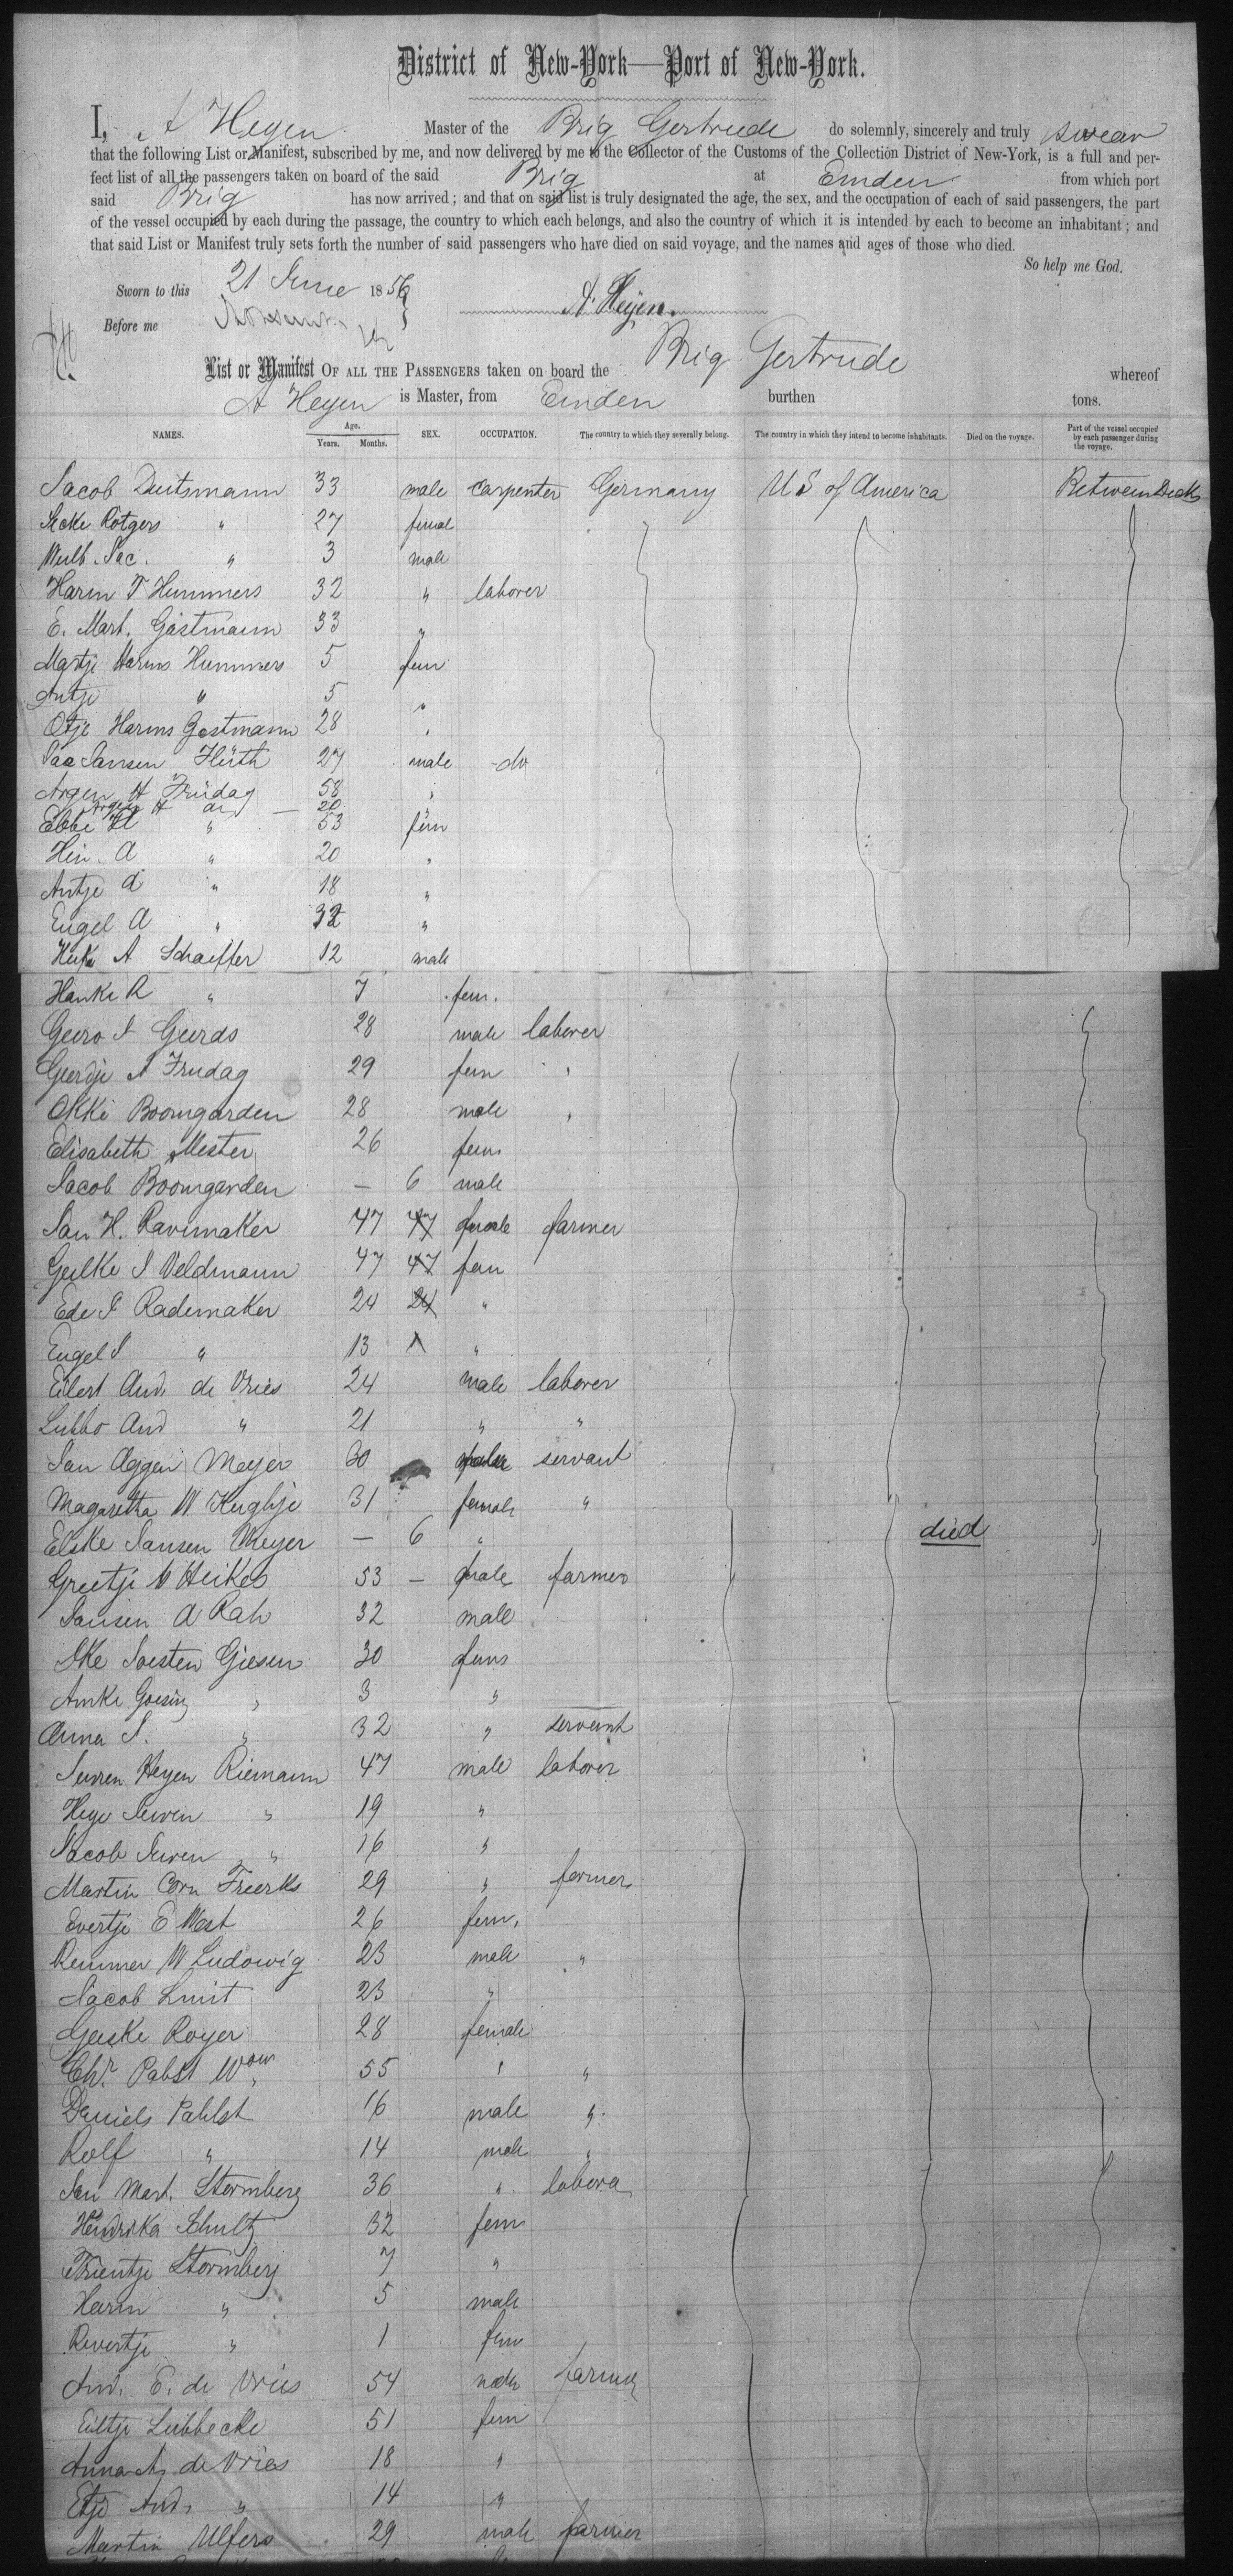 District of New-York—Port of New-York.
I, A Heyen Master of the Brig Gertrude do solemnly, sincerely and truly swear
that the following List or Manifest, subscribed by me, and now delivered by me to the Collector of the Customs of the Collection District of New-York, is a full and per-
fect list of all the passengers taken on board of the said Brig at Emden from which port
said Brig has now arrived; and that on said list is truly designated the age, the sex, and the occupation of each of said passengers, the part
of the vessel occupied by each during the passage, the country to which each belongs, and also the country of which it is intended by each to become an inhabitant; and
that said List or Manifest truly sets forth the number of said passengers who have died on said voyage, and the names and ages of those who died.
So help me God.
Sworn to this 21 June 1856
A. Heyen.
Before me
List or Manifest OF ALL THE PASSENGERS taken on board the Brig Gertrude whereof
A Heyen is Master, from Emden burthen tons.
NAMES. Age. Years. Months. SEX. OCCUPATION. The country to which they severally belong. The country in which they intend to become inhabitants. Died on the voyage. Part of the vessel occupied by each passenger during the voyage.
Jacob Duitsmann 33 male carpenter Germany US of America Between Decks
Rotgers " 27 femal
Wulb. Jac. " 3 male
Harm T Hummers 32 " laborer
E. Mart. Gastmann 33 "
Martje Harms Hummers 5 fem
Antje " 5 "
Otje Harms Gostmann 28 "
Jac Jansen Hüth 27 male do
Argen H Früdag 58 "
Argen H do — 20
Ebbe H " 53 fem
Hin. A " 20 "
Antje A " 18 "
Engel A " 32 "
A Schaeffer 12 male
Hanke R " 7 fem.
Geero J Geerds 28 male laborer
Geerdje A Frudag 29 fem "
Okke Boomgarden 28 male "
Elisabeth Mester 26 fem
Jacob Boomgarden — 6 male
Jan H. Ravimaker 47 47 male farmer
Geelke J Veldmann 47 47 fem
Ede J Rademaker 24 24 "
Engel J " 13 1 "
Eilert And. de Vries 24 male laborer
Lubbo And " 21 " "
Jan Aggen Meyer 30 male servant
Magaretha W Kughje 31 female "
Elske Jansen Meyer — 6 " died
Greetje W Heikes 53 — male farmer
Jansen A Rah 32 male
Ike Joesten Giesen 30 fem
Amke Goesing " 3 "
Anna J. " 32 " servant
Jurren Heyen Riemann 47 male laborer
Heye Jurren " 19 "
Jacob Jurren " 16 "
Martin Corn Freerks 29 " farmer
Evertje E West 26 fem.
Remmer W Ludowig 23 male "
Jacob Smit 23 "
Geeske Royer 28 female
Chr. Pabst Wow 55 " "
Daniels Pahlst 16 male "
Rolf " 14 male "
Jan Mart. Stormberg 36 " labora
Hendrika Schultz 32 fem
Trientje Stormberg 7 "
Harm " 5 male
Revertje " 1 fem
And. E. de Vries 54 male farmer
Eiltje Lubbecke 51 fem
Anna A. de Vries 18 "
Etje And. " 14 "
Martin Ulfers 29 male farmer